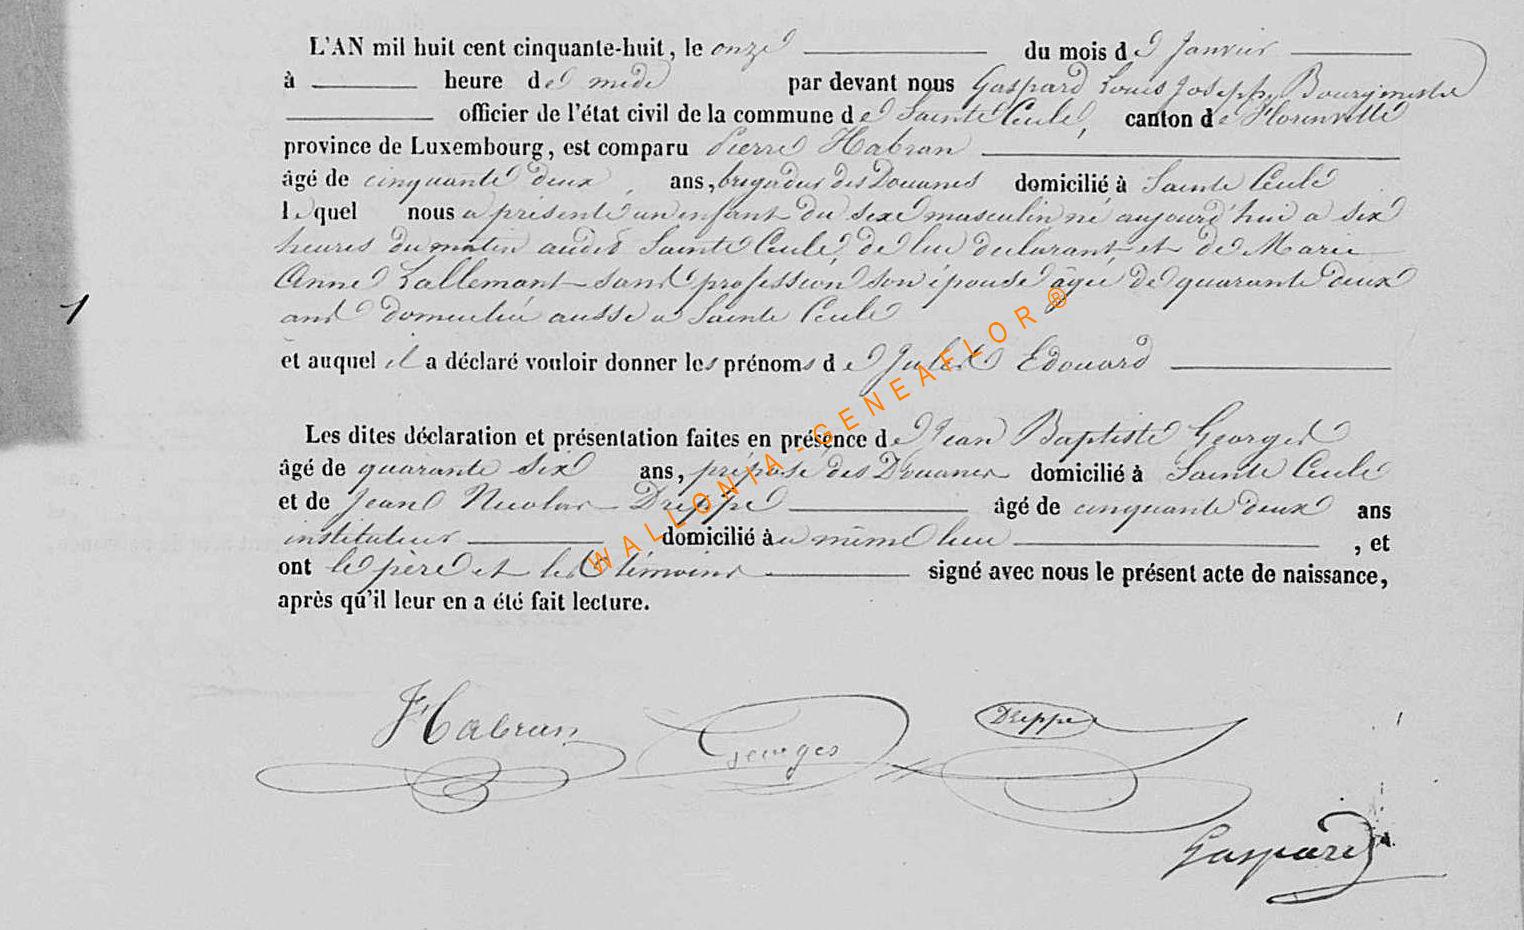 L'AN mil huit cent cinquante-huit, le onze du mois de Janvier
à heure de midi par devant nous Gaspard Louis Joseph, Bourgmestre
officier de l'état civil de la commune de Sainte Cécile, canton de Florenville
province de Luxembourg, est comparu Pierre Habran
âgé de cinquante deux ans, brigadier des Douanes domicilié à Sainte Cécile
lequel nous a présenté un enfant du sexe masculin né aujourd'hui a six
heures du matin audit Sainte Cécile, de lui déclarant, et de Marie
Anne Lallemant sans profession son épouse âgée de quarante deux
ans domiciliée aussi a Sainte Cécile
et auquel il a déclaré vouloir donner les prénoms de Jules Edouard
Les dites déclaration et présentation faites en présence de Jean Baptiste Georges
âgé de quarante six ans, préposé des Douanes domicilié à Sainte Cécile
et de Jean Nicolas Dreppe âgé de cinquante deux ans
instituteur domicilié à même lieu , et
ont le père et les témoins signé avec nous le présent acte de naissance,
après qu'il leur en a été fait lecture.
1
WALLONIA-GENEAFLOR ®
Habran Georges Dreppe
Gaspard